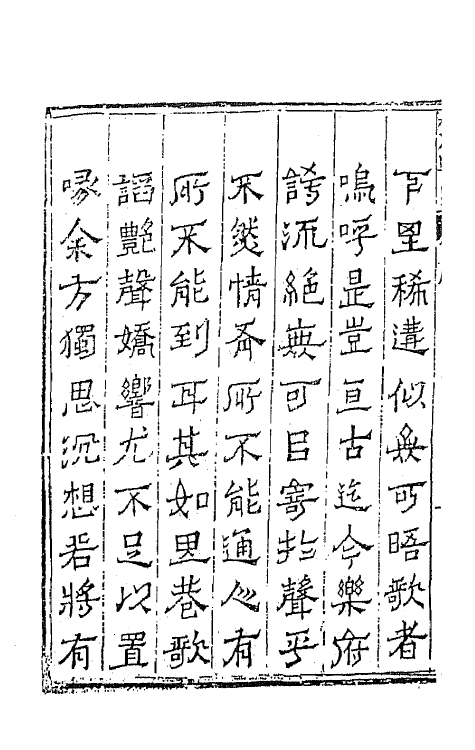 下里稀遘似無可晤歌者
嗚呼是豈亘古迄今樂府
諸流絕無可㠯寄扵聲乎
不然情所不能通必有
所不能到耳其如里巷歌
謟艷聲嬌響尤不足以置
喙余方獨思沉想若將有